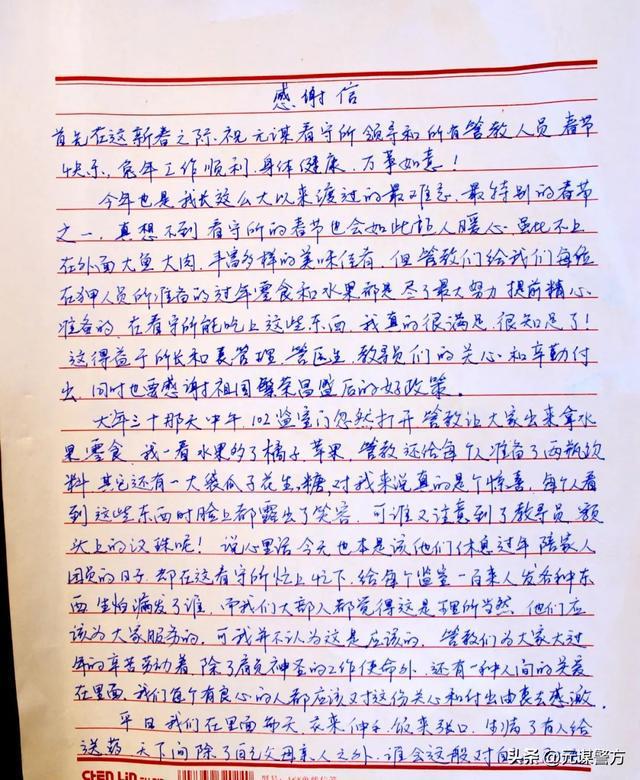 感谢信
首先在这新春之际、祝元谋看守所领导和所有管教人员春节
快乐、兔年工作顺利、身体健康、万事如意！
今年也是我长这么大以来渡过的最难忘、最特别的春节
之一，真想不到看守所的春节也会如此 人暖心，虽比不上
在外面大鱼大肉、丰富多样的美味佳肴，但管教们给我们每位
在押人员所准备的过年零食和水果都是尽了最大努力提前精心
准备的，在看守所能吃上这些东西，我真的很满足，很知足了！
这得益于所长和 管理、管医生、教导员们的关心和辛勤付
出，同时也要感谢祖国繁荣昌盛后的好政策。
大年三十那天中午，102监室门忽然打开，管教让大家出来拿水
果零食，我一看水果 了橘子、苹果，管教还给每个人准备了两瓶饮
料，其它还有一大袋瓜子、花生、糖，对我来说真的是个惊喜，每个人看
到这些东西时脸上都露出了笑容，可谁又注意到了教导员额
头上的汗珠呢！说心里话今天也本是该他们休息过年陪家人
团圆的日子，却在这看守所忙上忙下，给每个监室一百来人发各种东
西生怕漏发了谁，而我们大部人都觉得这是理所当然，他们应
该为大家服务的，可我并不认为这是应该的，管教们为大家大过
年的辛苦劳动着，除了肩负神圣的工作使命外，还有一种人间的关爱
在里面，我们每个有良心的人都应该对这份关心和付出由衷去感激。
平日我们在里面每天衣来伸手、饭来张口，生病了有人给
送药，天下间除了自己父母亲人之外，谁会这般对
头条@元谋警方
Chen Lin